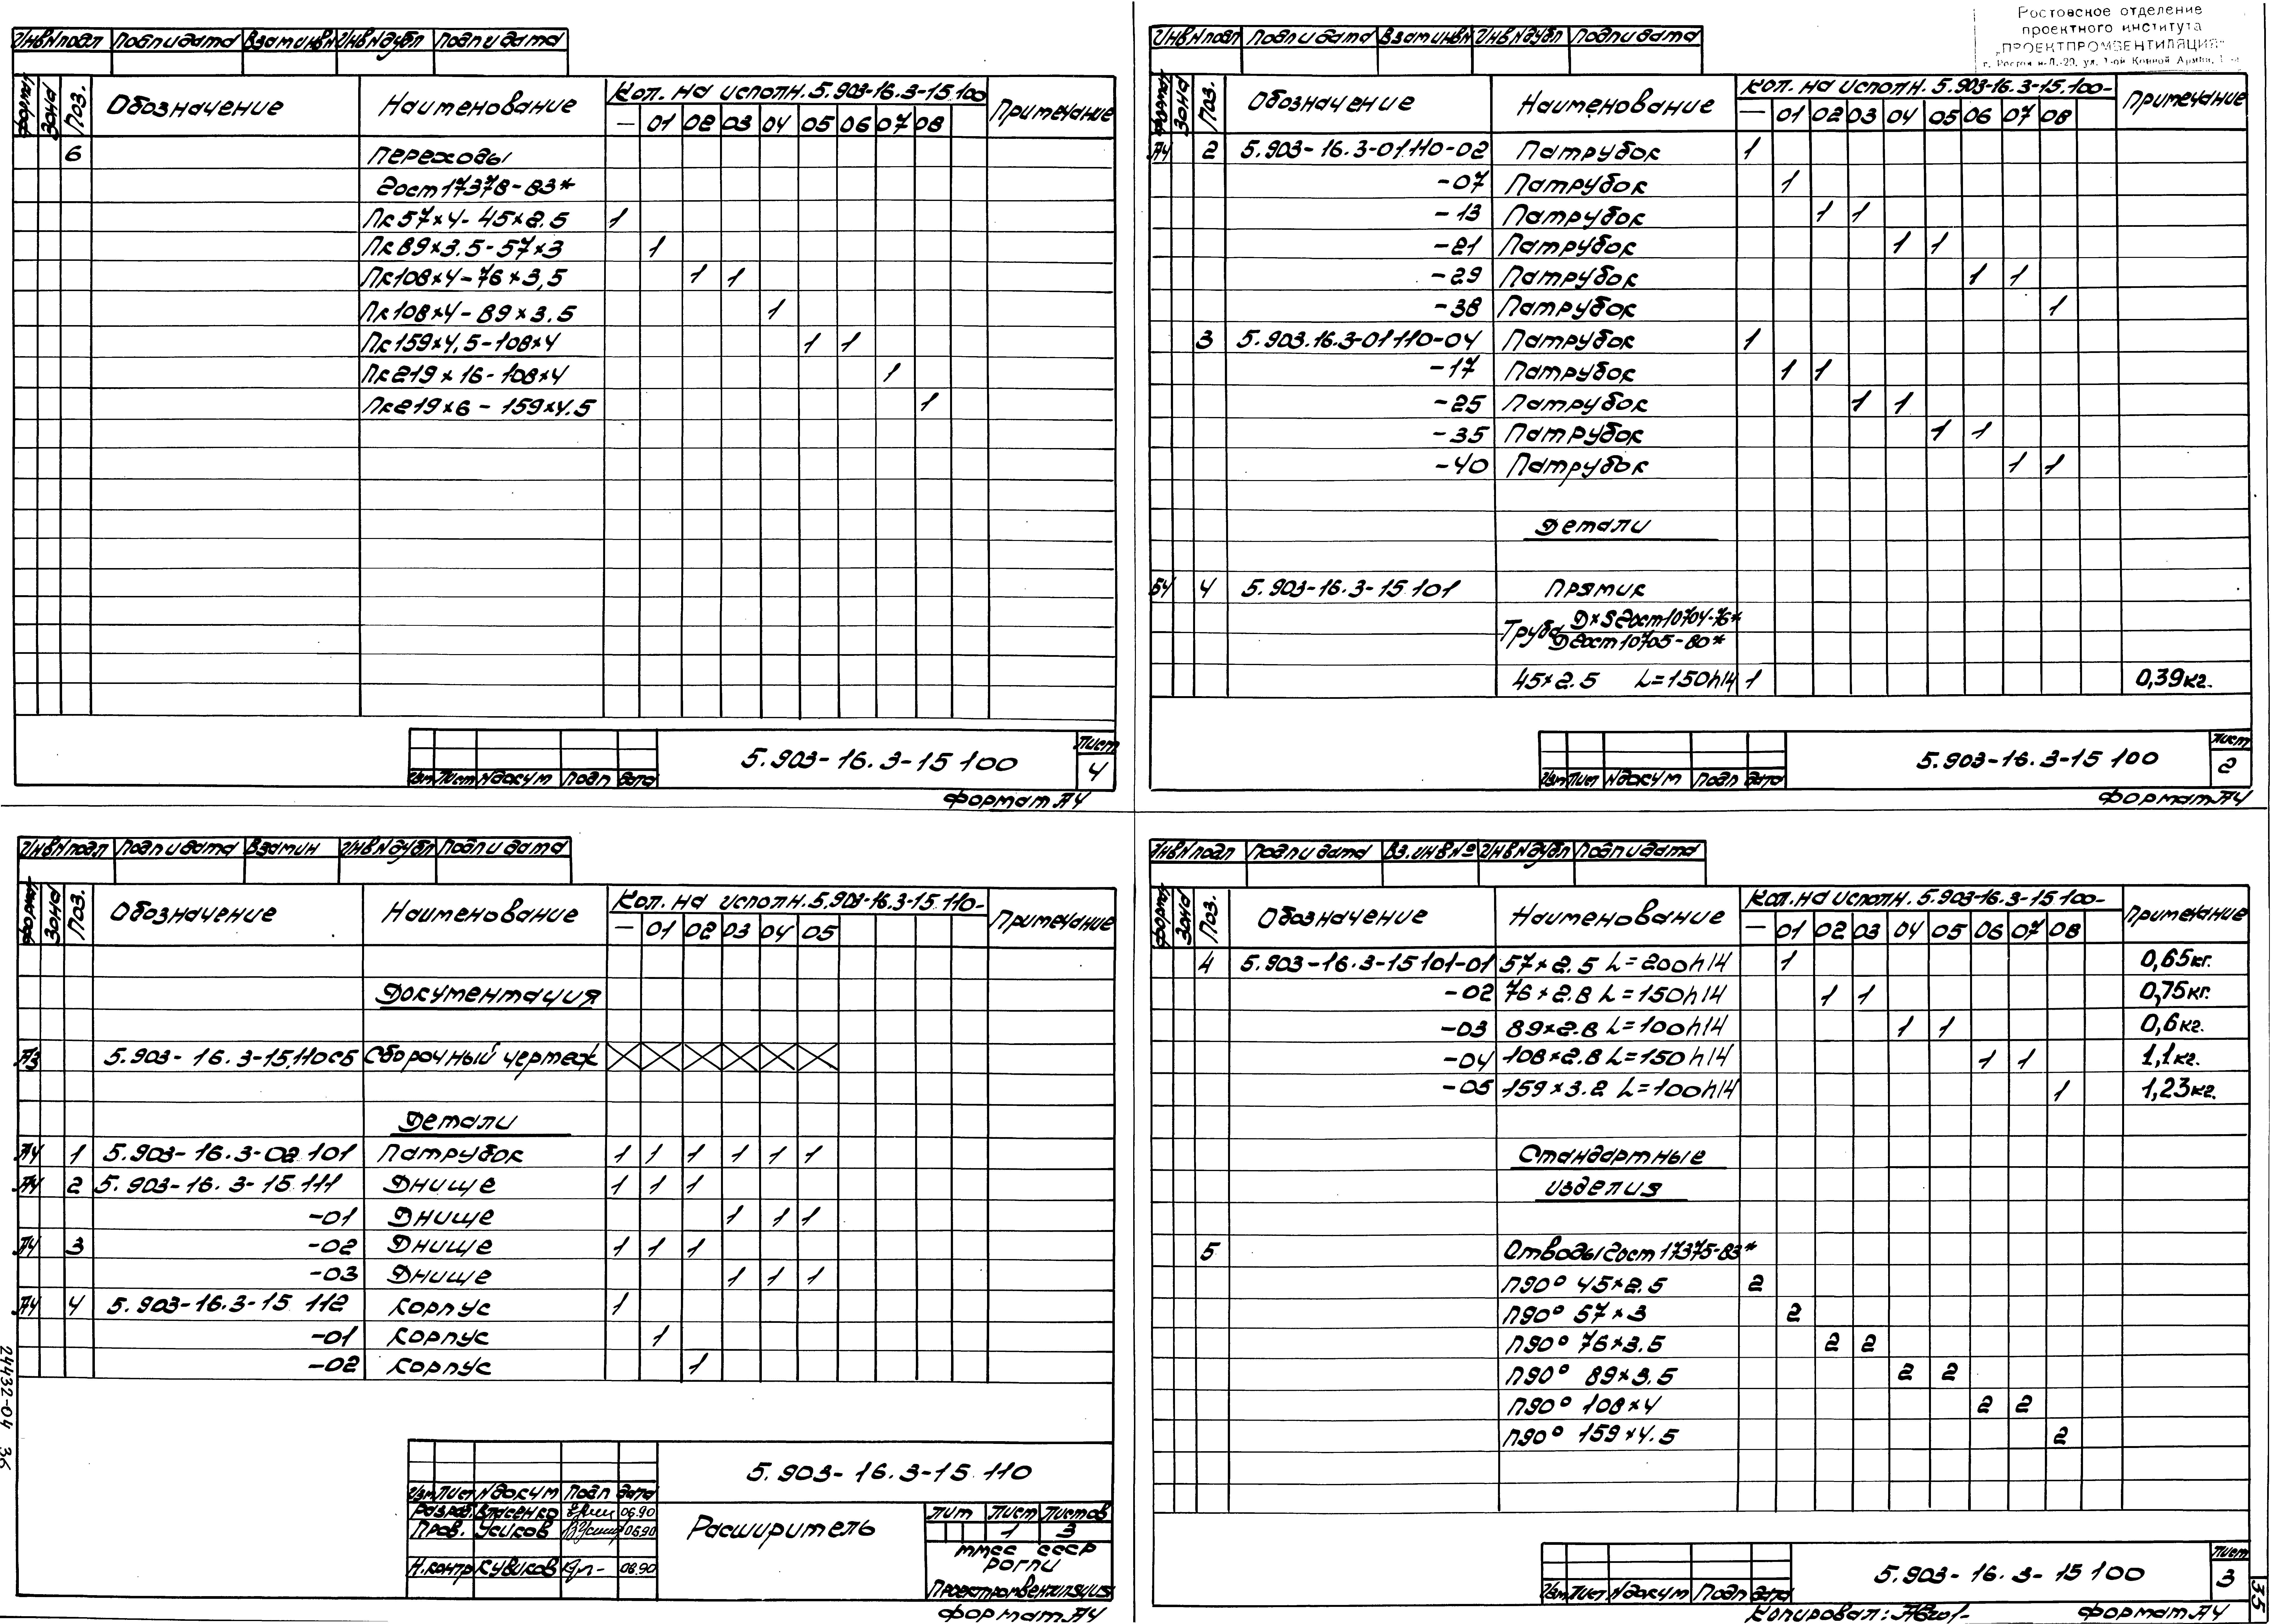 Инв№подл Подп и дата Взам инв№ Инв№дубл Подп и дата
Формат Зона Поз. Обозначение Наименование Кол. на исполн. 5.903-16.3-15.100 Примечание
— 01 02 03 04 05 06 07 08
6 Переходы
Гост 17378-83*
Пк 57×4-45×2.5 1
Пк 89×3.5-57×3 1
Пк 108×4-76×3,5 1 1
Пк 108×4-89×3.5 1
Пк 159×4,5-108×4 1 1
Пк 219×16-108×4 1
Пк 219×6-159×4.5 1
Изм Лист №докум Подп Дата 5.903-16.3-15 100 Лист 4
Формат А4
Ростовское отделение
проектного института
„ПРОЕКТПРОМВЕНТИЛЯЦИЯ"
Инв№подл Подп и дата Взам инв№ Инв№дубл Подп и дата
Формат Зона Поз. Обозначение Наименование Кол. на исполн. 5.903-16.3-15.100- Примечание
— 01 02 03 04 05 06 07 08
А4 2 5.903-16.3-01.110-02 Патрубок 1
-07 Патрубок 1
-13 Патрубок 1 1
-21 Патрубок 1 1
-29 Патрубок 1 1
-38 Патрубок 1
3 5.903.16.3-01 110-04 Патрубок 1
-17 Патрубок 1 1
-25 Патрубок 1 1
-35 Патрубок 1 1
-40 Патрубок 1 1
Детали
БЧ 4 5.903-16.3-15 101 Прямик
Труба D×S Гост 10704-76*
Д Гост 10705-80*
45×2.5 L=150h14 1 0,39кг.
Изм Лист №докум Подп Дата 5.903-16.3-15 100 Лист 2
Формат А4
Инв№подл Подп и дата Взам ин Инв№дубл Подп и дата
Формат Зона Поз. Обозначение Наименование Кол. на исполн. 5.903-16.3-15.110- Примечание
— 01 02 03 04 05
Документация
А3 5.903-16.3-15.110СБ Сборочный чертеж
Детали
А4 1 5.903-16.3-02 101 Патрубок 1 1 1 1 1 1
А4 2 5.903-16.3-15 111 Днище 1 1 1
-01 Днище 1 1 1
А4 3 -02 Днище 1 1 1
-03 Днище 1 1 1
А4 4 5.903-16.3-15 112 Корпус 1
-01 Корпус 1
-02 Корпус 1
5.903-16.3-15 110
Изм Лист №докум Подп Дата
Разраб. Власенко 06.90
Пров. Усиков 06.90
Н.контр Кувиков 08.90
Расширитель
Лит Лист Листов
1 3
ММСС СССР
РОГПИ
Проектпромвентиляция
Формат А4
24432-04 36
Инв№подл Подп и дата Вз.инв№ Инв№дубл Подп и дата
Формат Зона Поз. Обозначение Наименование Кол. на исполн. 5.903-16.3-15 100- Примечание
— 01 02 03 04 05 06 07 08
4 5.903-16.3-15 101-01 57×2.5 L=200h14 1 0,65кг.
-02 76×2.8 L=150h14 1 1 0,75кг.
-03 89×2.8 L=100h14 1 1 0,6кг.
-04 108×2.8 L=150h14 1 1 1,1кг.
-05 159×3.2 L=100h14 1 1,23кг.
Стандартные
изделия
5 Отводы Гост 17375-83*
П90° 45×2.5 2
П90° 57×3 2
П90° 76×3.5 2 2
П90° 89×3.5 2 2
П90° 108×4 2 2
П90° 159×4.5 2
Изм Лист №докум Подп Дата 5.903-16.3-15 100 Лист 3
Копировал: Формат А4
35